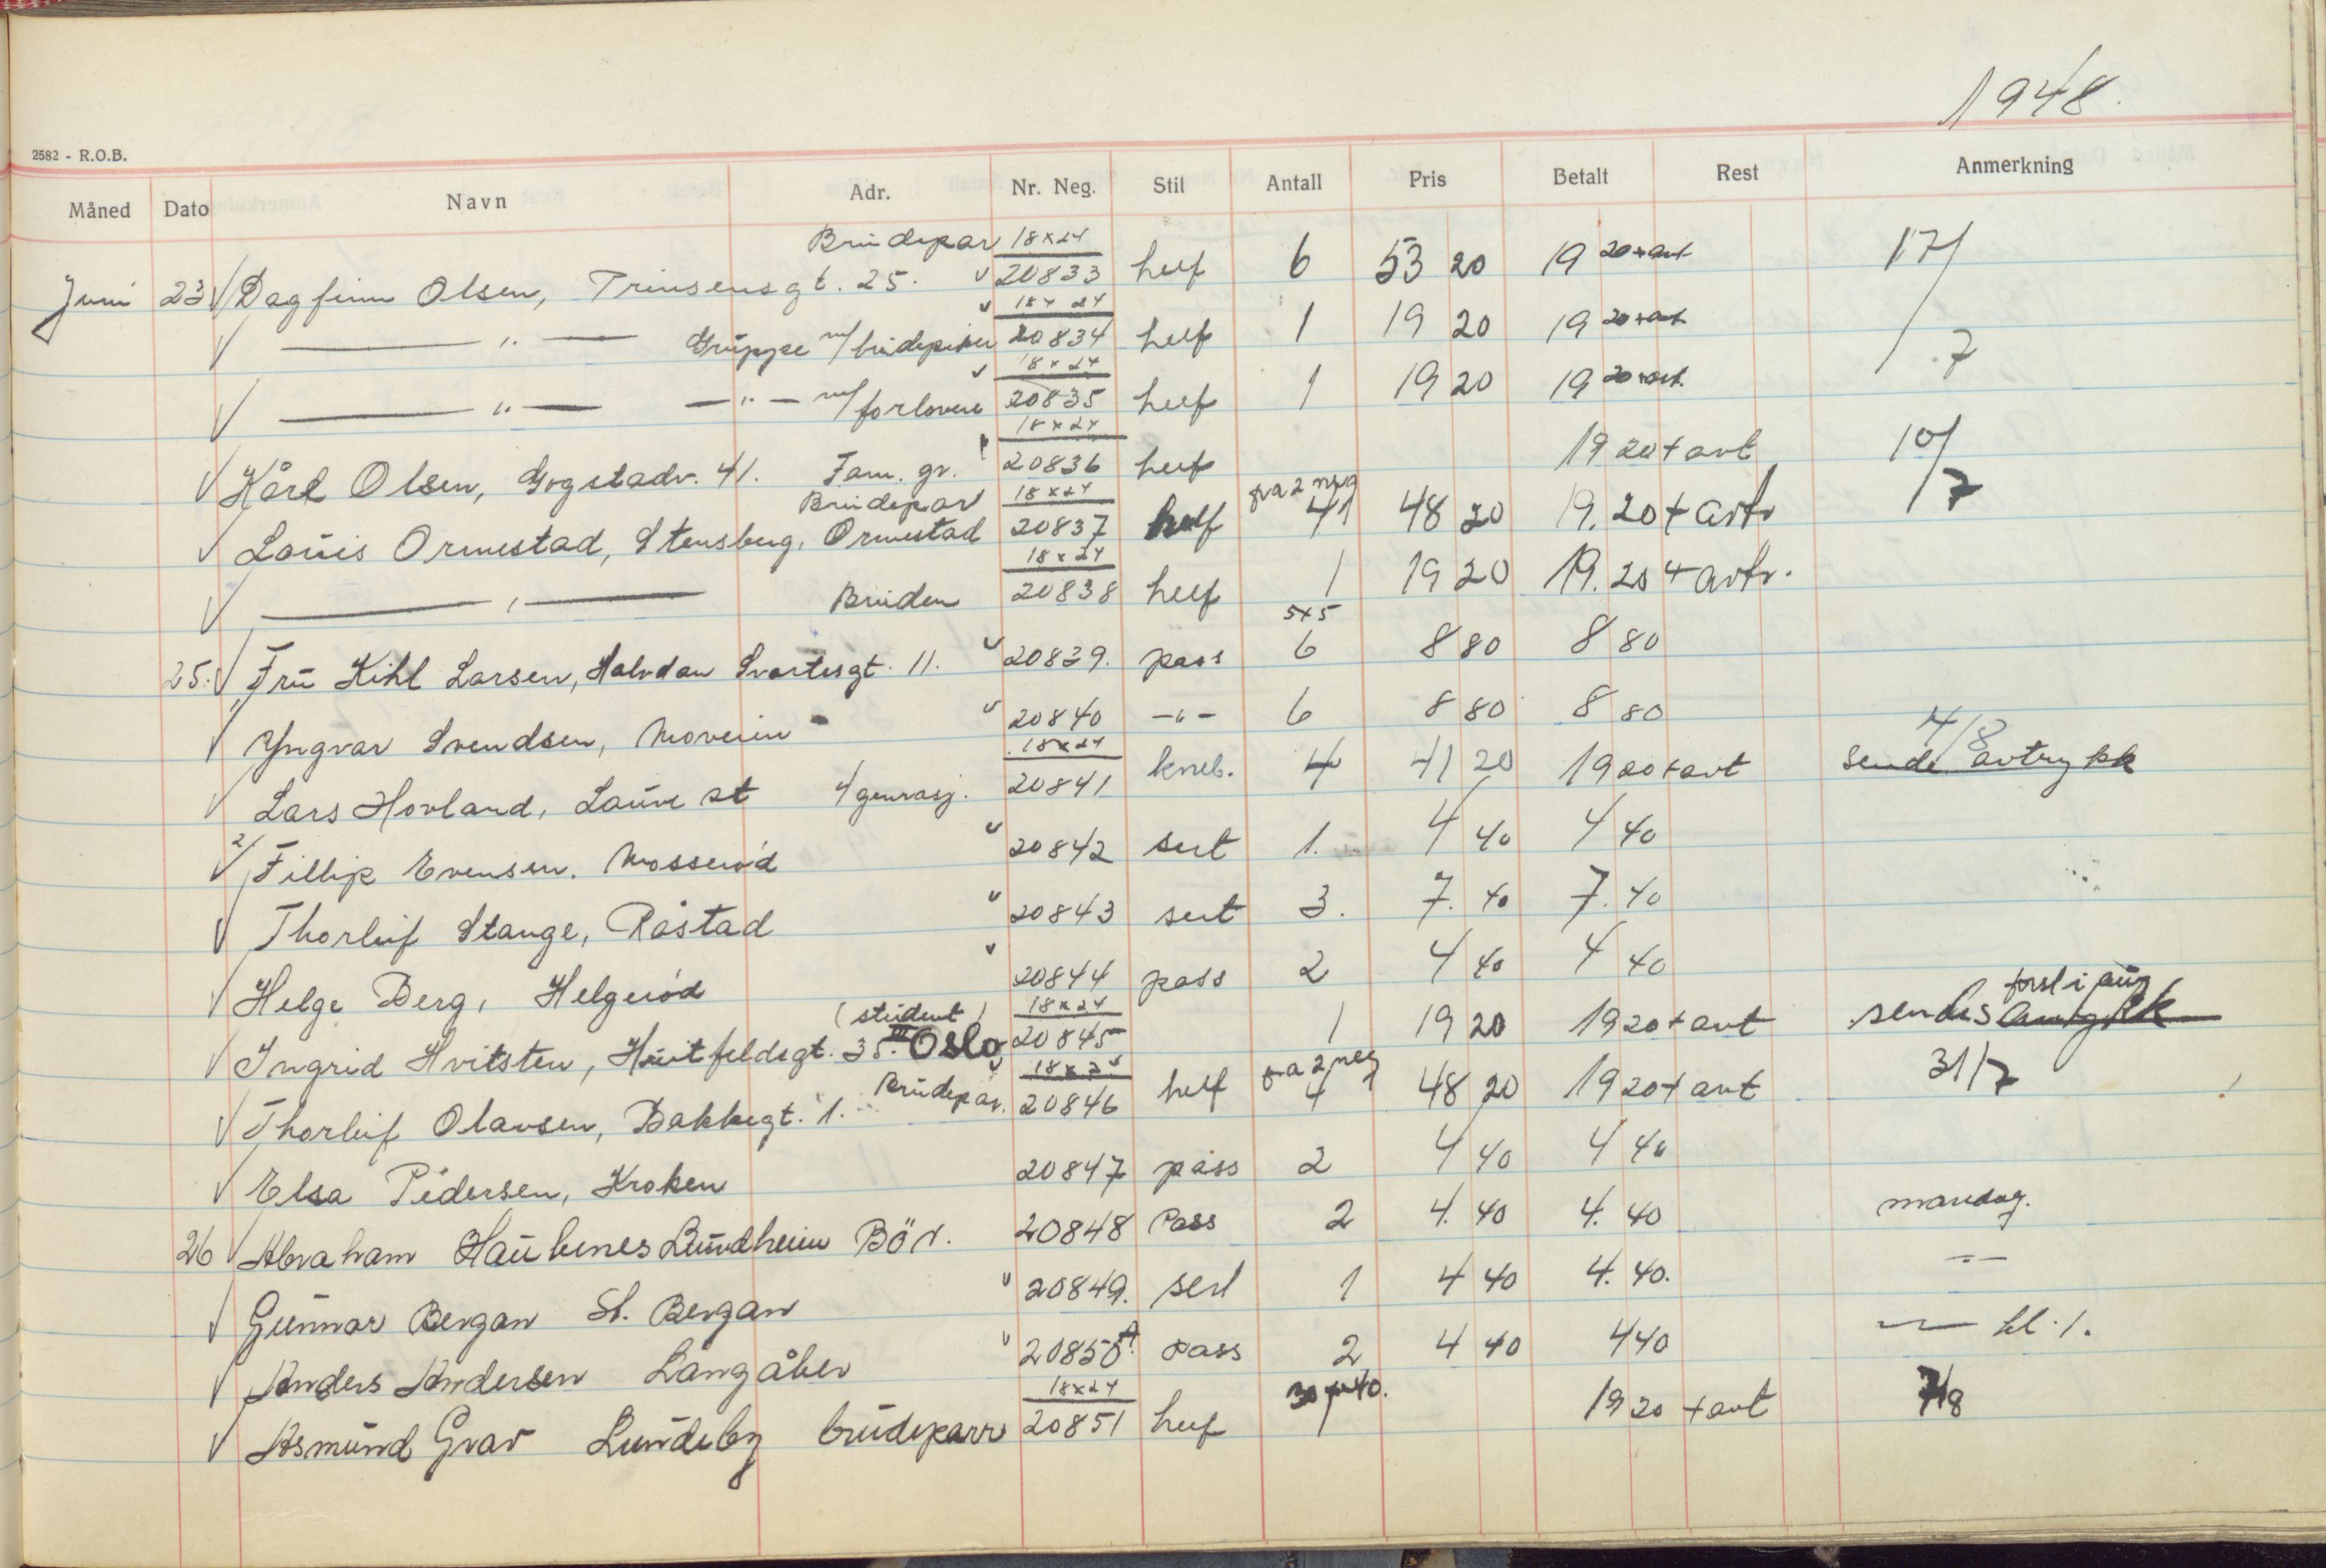 1948.
2582 - R.O.B.
Måned Dato Navn Adr. Nr. Neg. Stil Antall Pris Betalt Rest Anmerkning
Brudepar 18x24
Juni 23 Dagfinn Olsen, Prinsensgt. 25. 20833 helf 6 53 20 19 20+avt 17/7
18x24
— " — Gruppe m/brudepiker 20834 helf 1 19 20 19 20+avt
18x24
— " — — " — m/forlovere 20835 helf 1 19 20 19 20+avt.
18x24
Kåre Olsen, Gogstadv. 41. Fam. gr. 20836 helf 19 20+avt 10/7
Brudepar 18x24 fra 2 neg
Louis Ormestad, Stensberg, Ormestad 20837 helf 4 48 20 19.20+avtr
18x24
— " — Bruden 20838 helf 1 19 20 19.20+avtr.
5x5
25. Fru Kihl Larsen, Halvdan Svartesgt. 11. 20839. pass 6 8 80 8 80
Yngvar Svendsen, Moveien 20840 -"- 6 8 80 8 80
18x24 4/8
Lars Hovland, Lauve st 4 generasj. 20841 kneb. 4 41 20 19 20+avt sende avtrykk
2/ Fillip Evensen. Mosserød 20842 sert 1. 4 40 4 40
Thorleif Stange, Råstad 20843 sert 3. 7. 40 7. 40
Helge Berg, Helgerød 20844 pass 2 4 40 4 40
(student) 18x24 først i aug
Ingrid Hvitsten, Huitfeldsgt. 35.III Oslo 20845 1 19 20 19 20+avt sendes
Brudepar. 18x24 fra 2 neg
Thorleif Olavsen, Bakkegt. 1. 20846 helf 4 48 20 19 20+avt 31/7
Elsa Pedersen, Kroken 20847 pass 2 4 40 4 40
26 Abraham Haukenes Lundheim Bör. 20848 Pass 2 4. 40 4. 40 mandag.
Gunnar Bergan St. Bergan 20849. sert 1 4 40 4. 40. -"-
Anders Andersen Langåker 20850A. Pass 2 4 40 4 40 -"- kl. 1.
18x24
Asmund Grav Lundeby brudeparr 20851 helf 19 20 +avt 7/8